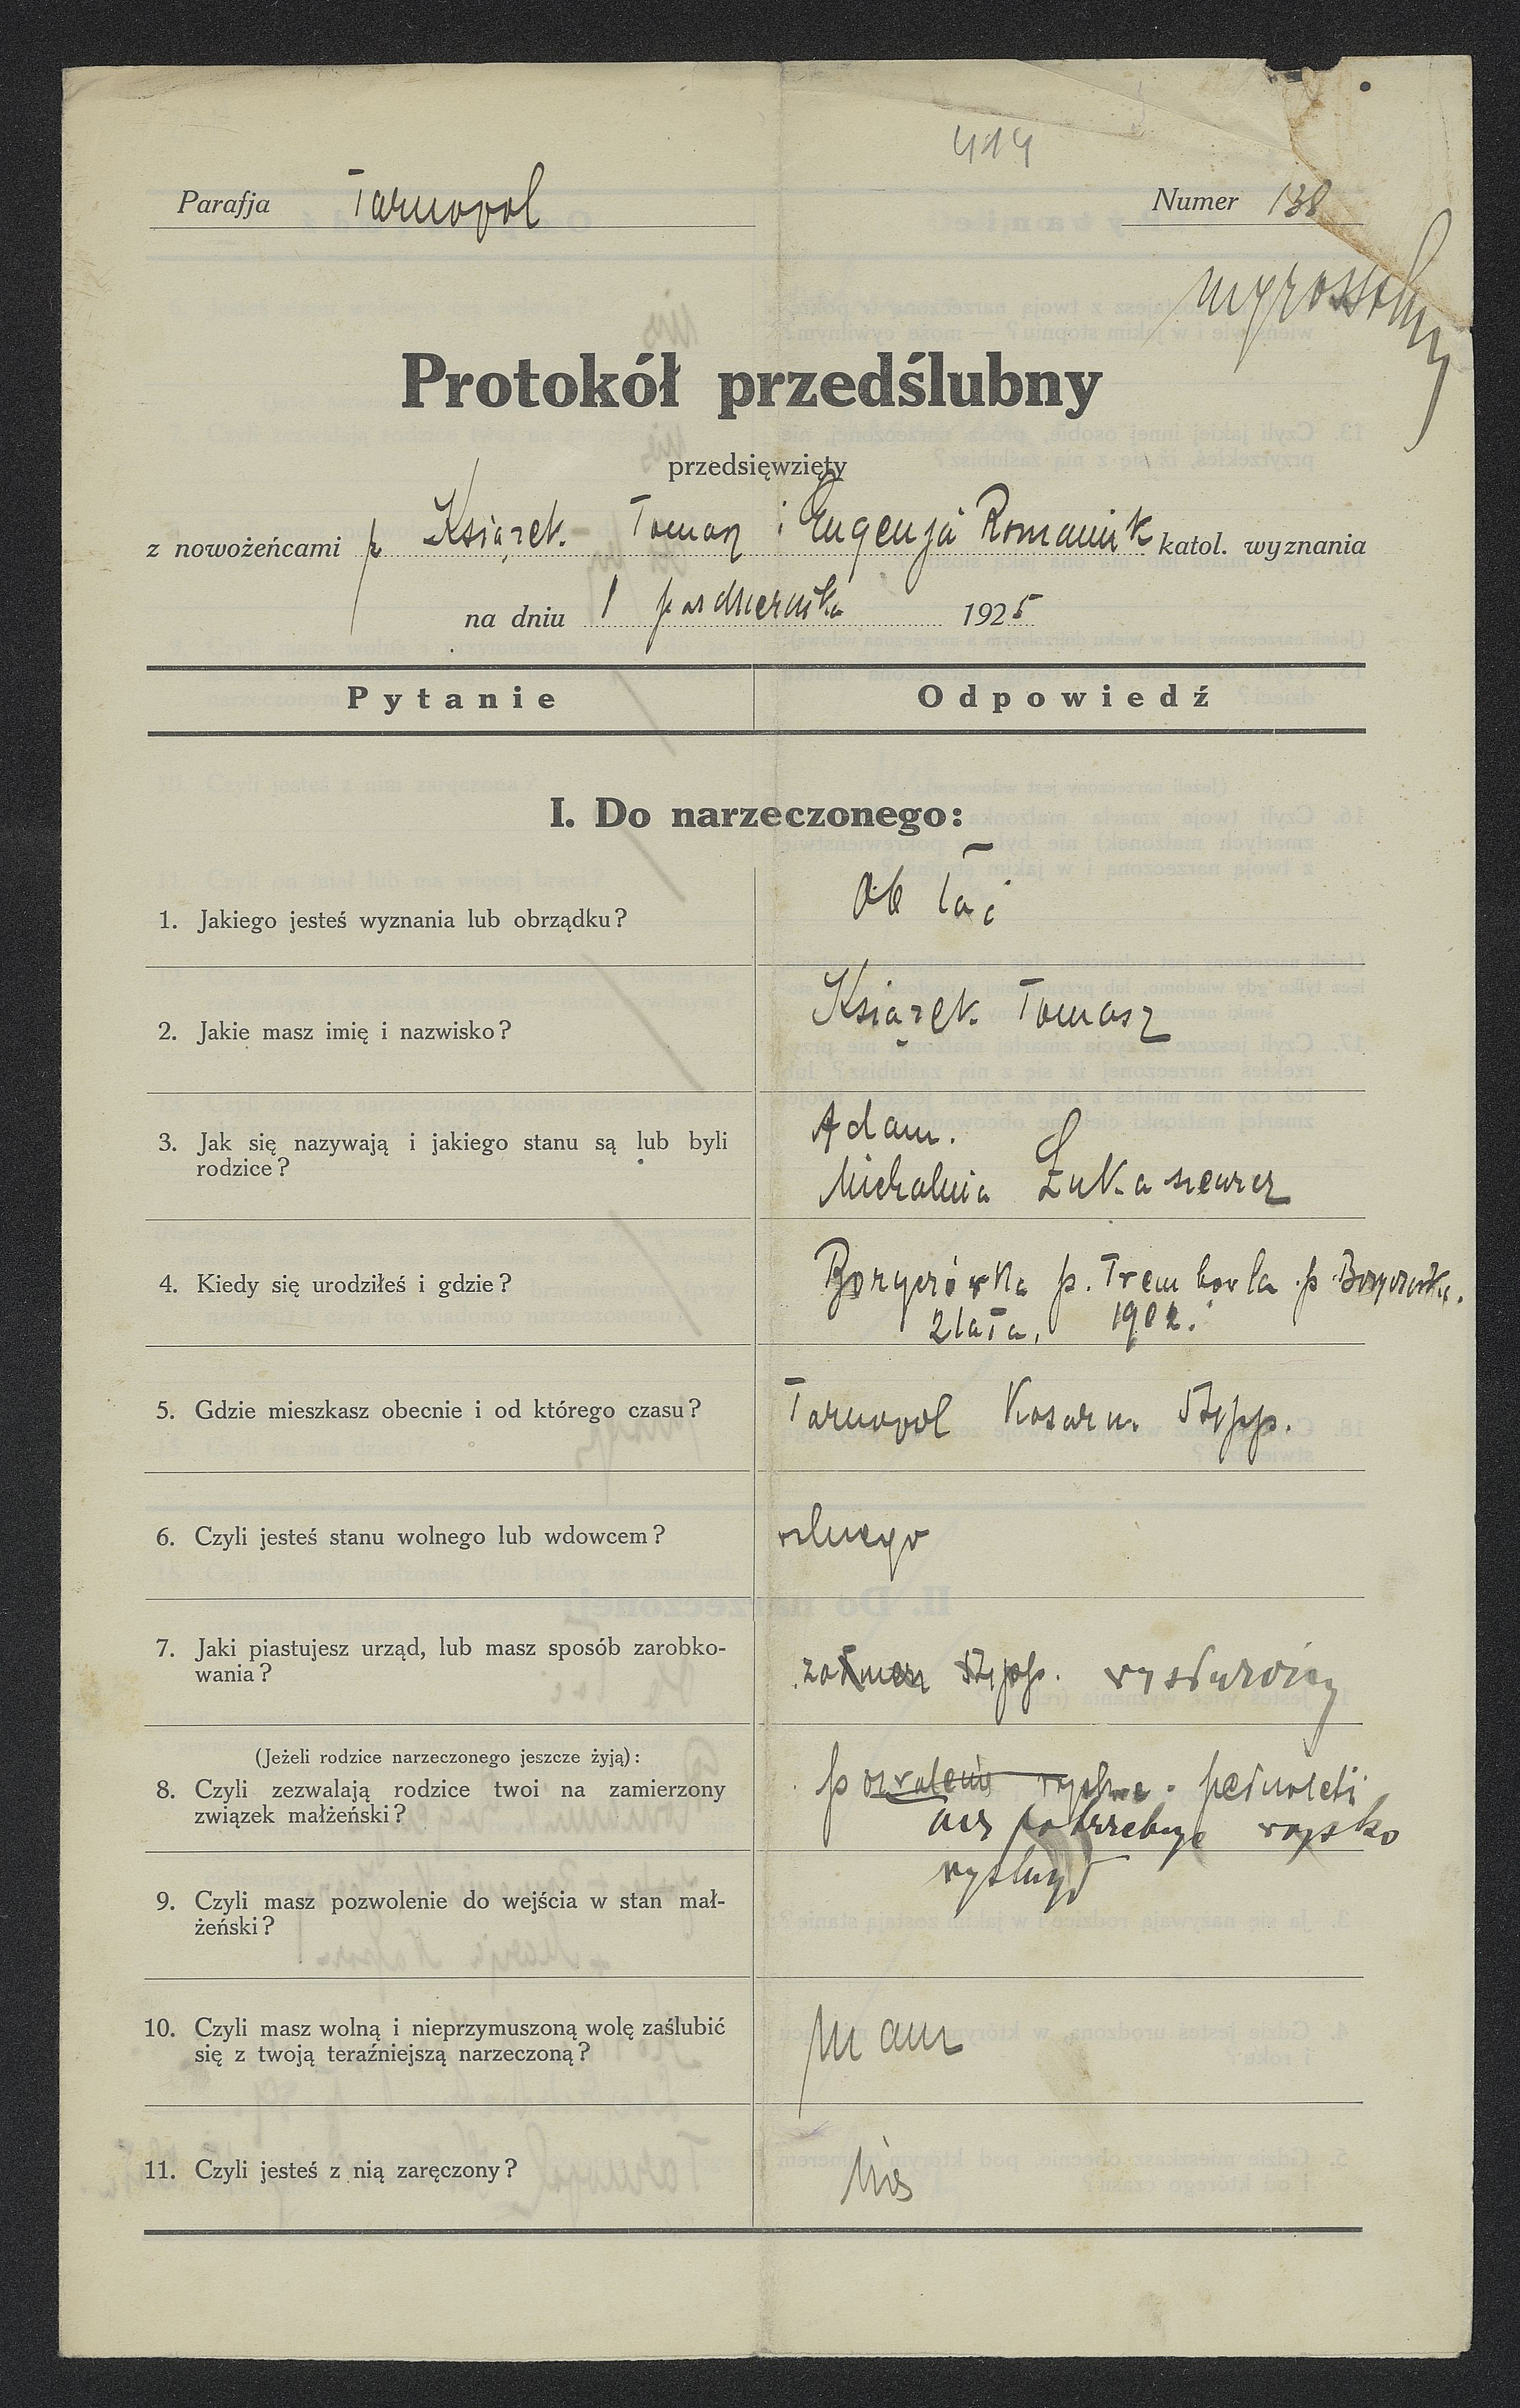 414
Parafja Tarnopol Numer 138
Protokół przedślubny
przedsięwzięty
z nowożeńcami p Książek Tomasz i Eugenja Romaniuk katol. wyznania
na dniu 1 października 1925
Pytanie Odpowiedź
I. Do narzeczonego:
1. Jakiego jesteś wyznania lub obrządku? Ob łać
2. Jakie masz imię i nazwisko? Książek Tomasz
3. Jak się nazywają i jakiego stanu są lub byli Adam.
rodzice? Michalina Łukasiewicz
4. Kiedy się urodziłeś i gdzie? Boryczówka p. Trembowla p Boryczówka.
2 lata, 1902.
5. Gdzie mieszkasz obecnie i od którego czasu? Tarnopol Koszar. 51 pp.
6. Czyli jesteś stanu wolnego lub wdowcem? wolnego
7. Jaki piastujesz urząd, lub masz sposób zarobko-
wania? żołnierz 51 pp. wysłużony
(Jeżeli rodzice narzeczonego jeszcze żyją):
8. Czyli zezwalają rodzice twoi na zamierzony pozwolenie pełnoletni
związek małżeński? nie potrzebuje wojsko
wysłużył
9. Czyli masz pozwolenie do wejścia w stan mał-
żeński?
10. Czyli masz wolną i nieprzymuszoną wolę zaślubić
się z twoją teraźniejszą narzeczoną? Mam
11. Czyli jesteś z nią zaręczony? Nie